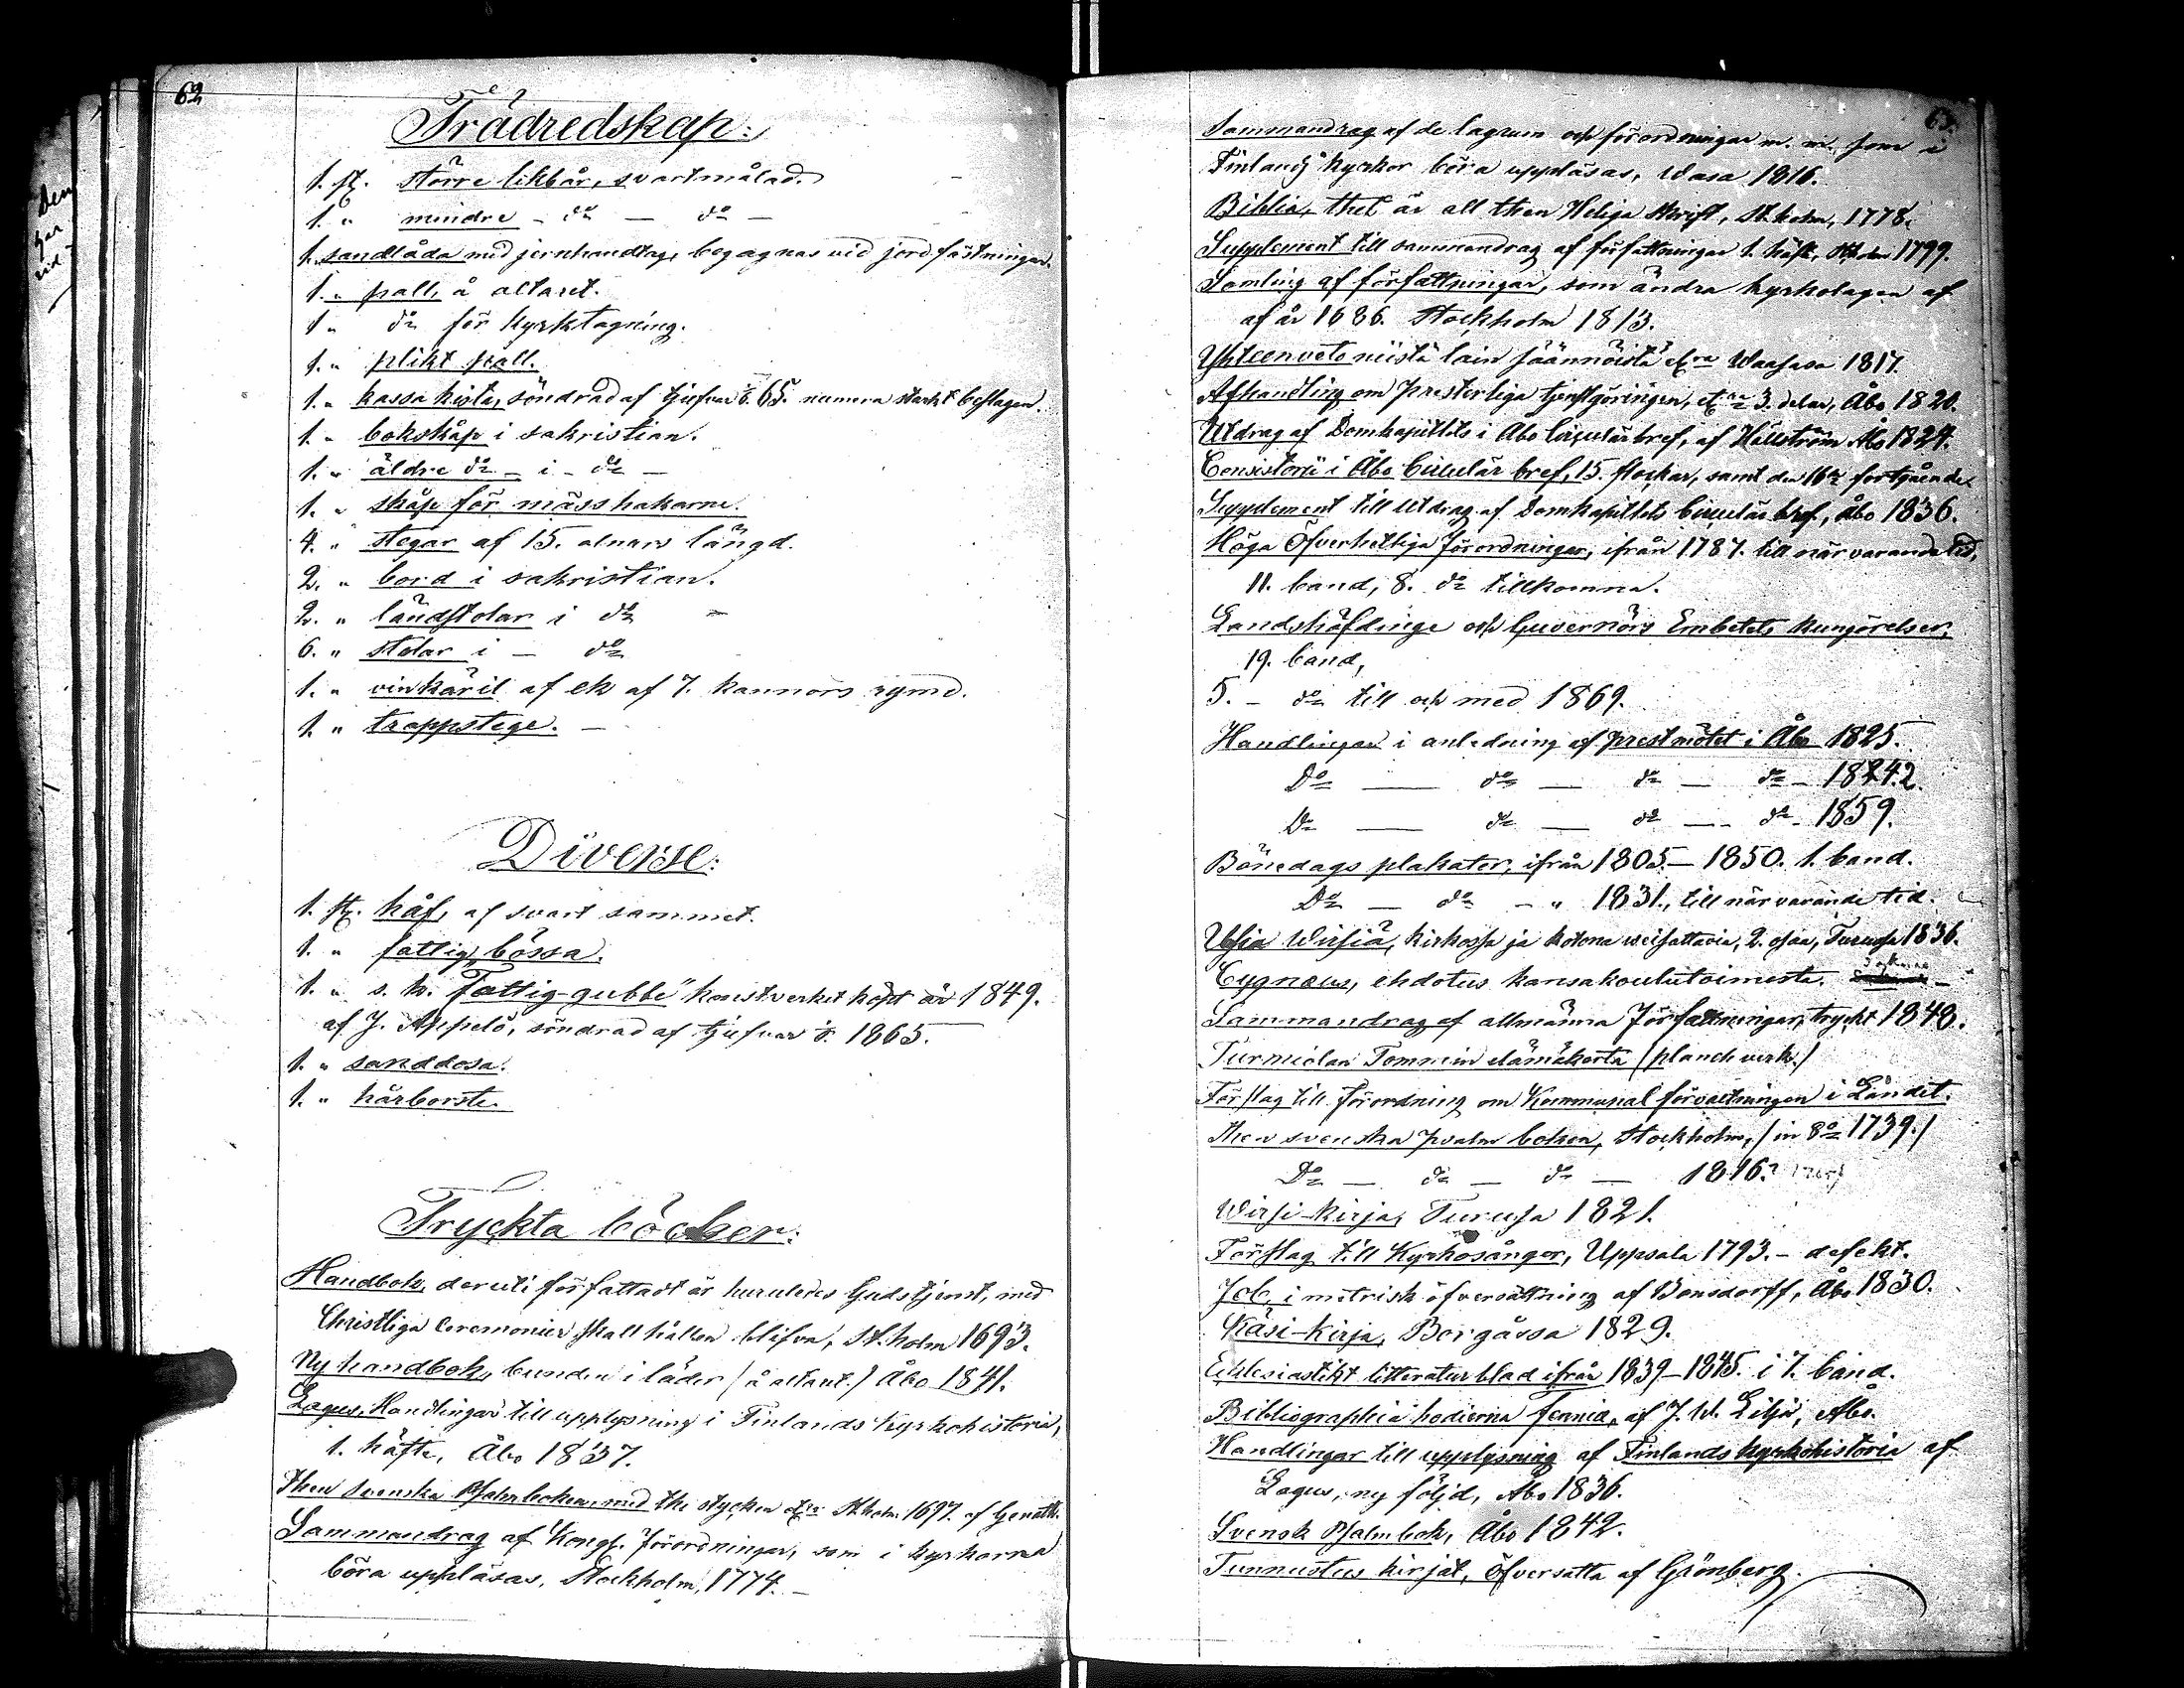 62
Trädredskap:
1. st. större likbår, svartmålad.
1. " mindre - do - do -
1. sandlåda med jernhandtag, begagnas vid jordfästningar.
1. " pall, å altaret.
1 " do för kyrktagning.
1. " plikt pall.
1. " kassa kista, söndrad af tjufvar 65. numera starkt beslagen.
1. " bokskåp i sakristian.
1. " äldre do - i - do -
1. " skåp för mässhakarne.
4. " stegar af 15. alnars längd.
2. " bord i sakristian.
2. " ländstolar i do -
6. " stolar i - do
1. " vinkäril af ek af 7. kannors rymd.
1. " trappstege. -
Diverse:
1. st. håf, af svart sammet.
1. " fattig bössa.
1. " s. k. Fattig-gubbe" konstverket köpt år 1849.
af J. Appelö, söndrad af tjufvar 1865.
1. " sanddosa.
1. " hårborste.
Tryckta böcker:
Handbok, deruti författadt är huruledes Gudstjenst, med
Christliga Ceremonier skall hållen blifva, St.holm 1693.
Ny handbok, bunden i läder (å altaret.) Åbo 1841.
Lagus, Handlingar till upplysning i Finlands Kyrkohistoria,
1. häfte, Åbo 1837.
Then Svenska Psalmboken, med the stycken St.holm 1697. af Genath.
Sammandrag af Kongl. Förordningar, som i kyrkorna
böra uppläsas, Stockholm, 1774. -
63.
Sammandrag af de lagrum och förordningar m. m. som i
Finlands kyrkor böra uppläsas, Wasa 1816.
Biblia, thet är all then Heliga Skrift, St.holm, 1778.
Supplement till sammandrag af författningar 1. häfte, St.holm 1799.
Samling af författningar, som ändra kyrkolagen af
af år 1686. Stockholm 1813.
Yhteenveto niistä lain säännöistä Waasasa 1817.
Afhandling om presterliga tjenstgöringen, 3. delar, Åbo 1820.
Utdrag af Domkapitlets i Åbo Cirkulär bref, af Hällström Åbo 1827.
Consistorii i Åbo Cirkulär bref, 15. flockar, samt den 16de fortgående.
Supplement till Utdrag af Domkapitlets Cirkulär bref, Åbo 1836.
Höga Öfverhetliga Förordningar, ifrån 1787. till närvarande tid,
11. band, 8. do tillkomna.
Landshöfdinge och Guvernörs Embetets Kungörelser,
19. band,
5. - do till och med 1869.
Handlingar i anledning af prestmötet i Åbo 1825.
Do - do - do - do - 1842.
Do - do - do - do - 1859.
Bönedags plakater, ifrån 1805. - 1850. 1. band.
Do - do - " 1831., till närvarande tid.
Uusia Wirsiä, kirkossa ja kotona weisattavia, 2. osaa, Turussa 1836.
Cygnæus, ehdotus kansakoulutoimesta.
Sammandrag af allmänna Författningar, tryckt 1848.
Turmiolan Tommin elämäkerta (planch verk.)
Förslag till förordning om Kommunal förvaltningen i Landet.
Then svenska psalm boken, Stockholm, (in 8o 1739.)
Do - do - do - 1816.
Wirsi-kirja, Turussa 1821.
Förslag till Kyrkosånger, Uppsala 1793. - defekt.
Job, i metrisk öfversättning af Bonsdorff, Åbo 1830.
Käsi-kirja, Borgåssa 1829.
Ecklesiastikt litteratur blad ifrån 1839-1845. i 7. band.
Bibliographia hodierna Fennia, af J. W. Lilja, Åbo.
Handlingar till upplysning af Finlands kyrkohistoria af
Lagus, ny följd, Åbo 1836.
Svensk Psalmbok, Åbo 1842.
Tunnustus kirjat, öfversatta af Grönberg.